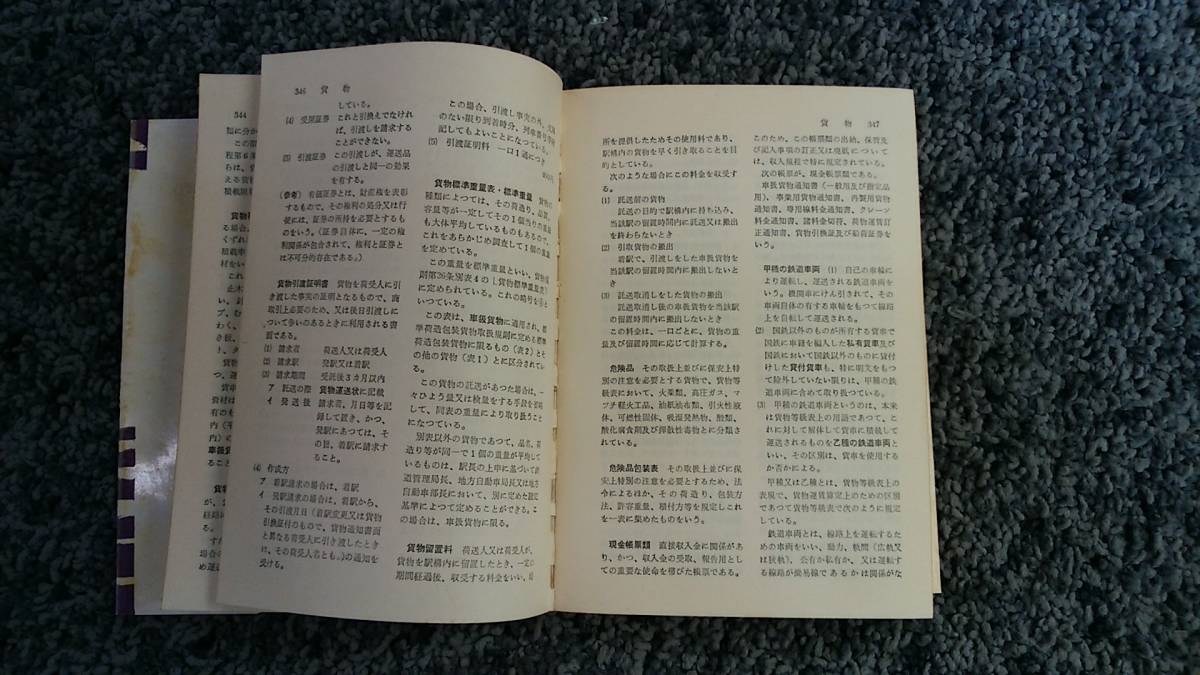 344
346 貨物
している。
(4) 受戻証券 これと引換えでなけれ
ば、引渡しを請求する
ことができない。
(5) 引渡証券 この引渡しが、運送品
の引渡しと同一の効果
を有する。
(参考) 有価証券とは、財産権を表彰
するもので、その権利の処分又は行
使には、証券の所持を必要とするも
のをいう。(証券自体に、一定の権
利関係が包含されて、権利と証券と
は不可分的存在である。)
貨物引渡証明書 貨物を荷受人に引
き渡した事実の証明となるもので、商
取引上必要のため、又は後日引渡しに
ついて争いのあるときに利用される書
面である。
(1) 請求者 荷送人又は荷受人
(2) 請求駅 発駅又は着駅
(3) 請求期間 受託後3カ月以内
ア 託送の際 貨物運送状に記載
イ 発送後 請求者、月日等を記
録して置き、かつ、
発駅にあつては、そ
の旨、着駅に請求す
ること。
(4) 作成方
ア 着駅請求の場合は、着駅
イ 発駅請求の場合は、着駅から、
その引渡月日(着駅変更又は貨物
引換証付のもので、貨物通知書面
と異なる荷受人に引き渡したときに
は、その荷受人名とも。)の通知を
受ける。
この場合、引渡し事実の外、支障
のない限り到着時分、列車番号等併
記してもよいことになつている。
(5) 引渡証明料 一口1通につき
貨物標準重量表・標準重量 貨物の
種類によつては、その荷造り、品質、
容量等が一定してその1個当りの重量
も大体平均しているものもあるので、
これをあらかじめ調査して1個の重量
を定めている。
この重量を標準重量といい、貨物規
則第26条別表4の「貨物標準重量表」
に定められている。これの略号を
いつている。
この表は、車扱貨物に適用され、標
準荷造包装貨物取扱規則に定める標準
荷造包装貨物に限るもの(表2)とそ
の他の貨物(表1)とに区分されてい
る。
この貨物の託送があつた場合は、一
々ひよう量又は検量をする手数を省略
して、同表の重量により取り扱うこと
になつている。
別表以外の貨物であつて、品名、荷
造り等が同一で1個の重量が平均して
いるものは、駅長の上申に基づいて鉄
道管理局長、地方自動車局長又は地方
自動車部長において、別に定めた設定
基準によつて定めることができる。こ
の場合は、車扱貨物に限る。
貨物留置料 荷送人又は荷受人が、
貨物を駅構内に留置したとき、一定の
期間経過後、収受する料金をいい、場
貨物 347
所を提供したためその使用料であり、
駅構内の貨物を早く引き取ることを目
的としている。
次のような場合にこの料金を収受す
る。
(1) 託送前の貨物
託送の目的で駅構内に持ち込み、
当該駅の留置時間内に託送又は搬出
を終わらないとき
(2) 引取貨物の搬出
着駅で、引渡しをした車扱貨物を
当該駅の留置時間内に搬出しないと
き
(3) 託送取消しをした貨物の搬出
託送取消し後の車扱貨物を当該駅
の留置時間内に搬出しないとき
この料金は、一口ごとに、貨物の重
量及び留置時間に応じて計算する。
危険品 その取扱上並びに保安上特
別の注意を必要とする貨物で、貨物等
級表において、火薬類、高圧ガス、マ
ツチ軽火工品、油紙油布類、引火性液
体、可燃性固体、吸湿発熱物、酸類、
酸化腐食剤及び揮散性毒物とに分類さ
れている。
危険品包装表 その取扱上並びに保
安上特別の注意を必要とするため、法
令によるほか、その荷造り、包装方
法、許容重量、積付方等を規定しこれ
を一表に集めたものをいう。
現金帳票類 直接収入金に関係があ
り、かつ、収入金の受取、報告用とし
ての重要な使命を帯びた帳票である。
このため、この帳票類の出納、保管及
び記入事項の訂正又は廃紙について
は、収入規程で特に規定されている。
次の帳票が、現金帳票類である。
車扱貨物通知書(一般用及び指定品
用)、事業用貨物通知書、内製用貨物
通知書、専用線料金通知書、クレーン
料金通知書、諸料金切符、貨物運賃訂
正通知書、貨物引換証及び船荷証券を
いう。
甲種の鉄道車両 (1) 自己の車輪に
より運転し、運送される鉄道車両をい
う。機関車にけん引されて、その
車両自体の有する車輪をもつて線路
上を自転して運送される。
(2) 国鉄以外のものが所有する貨車で
国鉄に車籍を編入した私有貨車及び
国鉄において国鉄以外のものに貸付
けた貸付貨車も、特に明文をもつ
て除外していない限りは、甲種の鉄
道車両に含めて取り扱つている。
(3) 甲種の鉄道車両というのは、本来
は貨物等級表上の用語であつて、こ
れに対して解体して貨車に積載して
運送されるものを乙種の鉄道車両と
いい、その区別は、貨車を使用する
か否かによる。
甲種又は乙種とは、貨物等級表上の
表現で、貨物運賃算定上のための区別
であつて貨物等級表で次のように規定
している。
鉄道車両とは、線路上を運転するた
めの車両をいい、動力、軌間(広軌又
は狭軌)、公有か私有か、又は運転す
る線路が簡易線であるかは関係がな